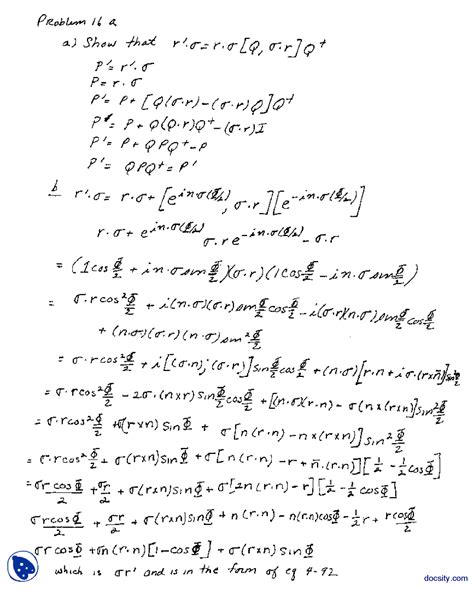 Problem 16 a
a) Show that r'·σ = r·σ [Q, σ·r] Q†
P' = r'·σ
P = r·σ
P' = P + [Q(σ·r) - (σ·r)Q]Q†
P' = P + Q(σ·r)Q† - (σ·r)I
P' = P + QPQ† - P
P' = QPQ† = P'
b r'·σ = r·σ + [e^{in·σ(Φ/2)}, σ·r][e^{-in·σ(Φ/2)}]
r·σ + e^{in·σ(Φ/2)} σ·r e^{-in·σ(Φ/2)} - σ·r
= (1cos Φ/2 + in·σ sin Φ/2)(σ·r)(1cos Φ/2 - in·σ sin Φ/2)
= σ·r cos² Φ/2 + i(n·σ)(σ·r) sin Φ/2 cos Φ/2 - i(σ·r)(n·σ) sin Φ/2 cos Φ/2
+ (n·σ)(σ·r)(n·σ) sin² Φ/2
= σ·r cos² Φ/2 + i[(σ·n), (σ·r)] sin Φ/2 cos Φ/2 + (n·σ)[r·n + iσ·(r×n)] sin² Φ/2
= σ·r cos² Φ/2 - 2σ·(n×r) sin Φ/2 cos Φ/2 + [(n·σ)(r·n) - σ(n×(r×n)] sin² Φ/2
= σ·r cos² Φ/2 + σ(r×n) sin Φ + σ[n(r·n) - n×(r×n)] sin² Φ/2
= σ·r cos² Φ/2 + σ(r×n) sin Φ + σ[n(r·n) - r + n·(r·n)][1/2 - 1/2 cos Φ]
= σr cos Φ/2 + σr/2 + σ(r×n) sin Φ + σ[2n(r·n) - r][1/2 - 1/2 cos Φ]
σr cos Φ/2 + σr/2 + σ(r×n) sin Φ + n(r·n) - n(r·n) cos Φ - 1/2 r + r cos Φ/2
σr cos Φ + σn(r·n)[1 - cos Φ] + σ(r×n) sin Φ
which is σr' and is in the form of eq 4-92
docsity.com